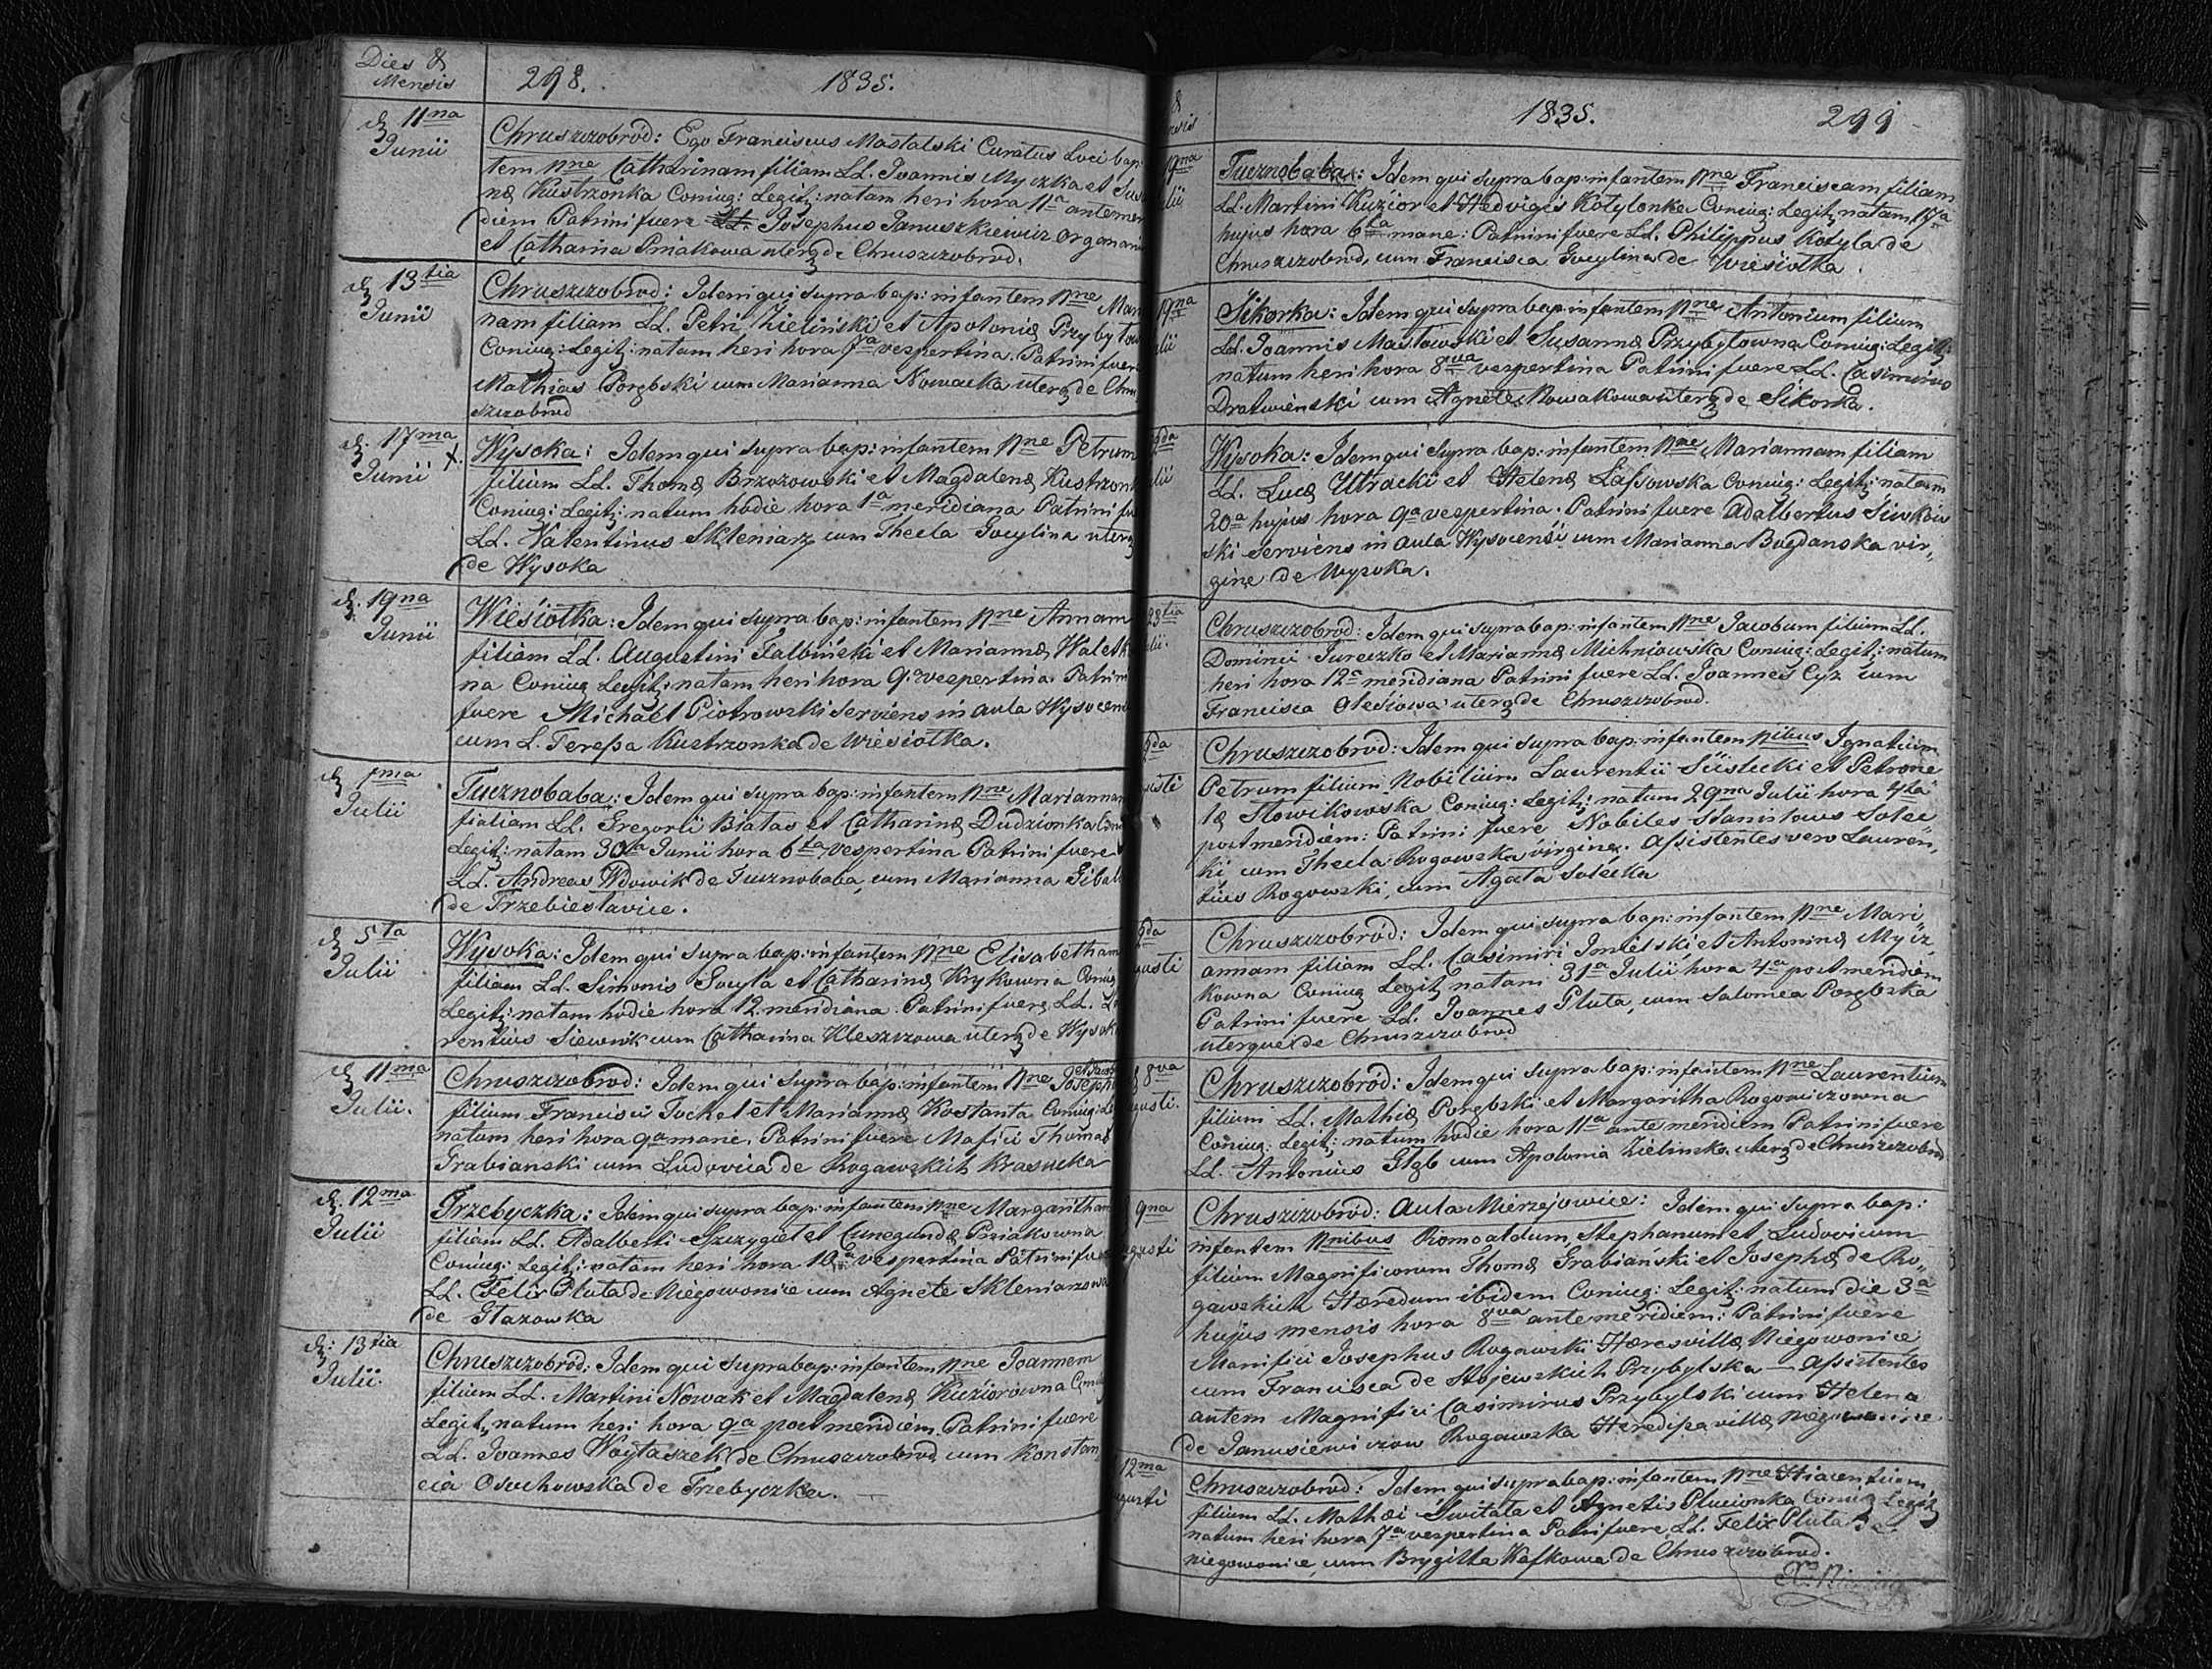 Dies &
Mensis
298. 1835.
d. 11na
Junii
Chruszczobród: Ego Franciscus Mastalski Curatus Loci bap:
tem nne Catharinam filiam LL. Joannis Myczka et Sus
næ Kustrzonka Coniug: Legit: natam heri hora 11a antemer
diem Patrini fuere Josephus Januszkiewicz organari
et Catharina Pniakowa uterq de Chruszczobrod.
d. 13tia
Junii
Chruszczobrod: Idem qui supra bap: infantem nne Mari
nam filiam LL. Petri Zieliński et Apoloniæ Przybyłow
Coniug: Legit: natam heri hora 7a vespertina. Patrini fuere
Mathias Porębski cum Marianna Nowacka uterq de Chru
szczobrod
d. 17ma
Junii X.
Wysoka: Idem qui supra bap: infantem nne Petrum
filium LL. Thomæ Brzozowski et Magdalenæ Kustrzonk
Coniug: Legit: natum hodie hora 1a meridiana Patrini fu
LL. Valentinus Skleniarz cum Thecla Gocylina uterq
de Wysoka
d. 19na
Junii
Wiesiołka: Idem qui supra bap: infantem nne Annam
filiam LL. Augustini Falbiński et Mariannæ Waletk
na Coniug Legit: natam heri hora 9. vespertina. Patrini
fuere Michael Piotrowski serviens in aula Wysocen
cum L. Teressa Kustrzonka de Wiesiołka.
d. 1ma
Julii
Tucznobaba: Idem qui supra bap: infantem nne Mariannam
fialiam LL. Gregorii Białas et Catharinæ Dudzionka Coni
Legit: natam 30ta Junii hora 6ta vespertina Patrini fuere
LL. Andreas Wdowik de Tucznobaba, cum Marianna Gibal
de Trzebiesławice.
d. 5ta
Julii
Wysoka: Idem qui supra bap: infantem nne Elisabetham
filiam LL. Simonis Gocyla et Catharinæ Krykowna Coniug
Legit: natam hodie hora 12 meridiana. Patrini fuere LL. La
rentius Siewnik cum Catharina Kleszczowa uterq de Wysok
d. 11ma
Julii.
Chruszczobrod: Idem qui supra bap: infantem nne Joseph
filium Francisci Tochel et Mariannæ Kostanta Coniug: Le
natum heri hora 9a mane. Patrini fuere Mafici Thomas
Grabianski cum Ludovica de Rogawskich Krasucka
d. 12ma
Julii
Trzebyczka: Idem qui supra bap: infantem nne Margaritham
filiam LL. Adalberti Szczygieł et Cunegundæ Pniakowna
Coniug: Legit: natam heri hora 10a vespertina Patrini fue
LL. Felix Pluta de Niegowonice cum Agnete Skleniarzowa
de Głazowka
d: 13tia
Julii.
Chruszczobród: Idem qui supra bap: infantem nne Joannem
filium LL. Martini Nowak et Magdalenæ Kuziorowna Coniu
Legit; natum heri hora 9a post meridiem. Patrini fuere
LL. Joannes Woytaszek de Chruszczobrod cum Konstan
cia Osuchowska de Trzebyczka.
1835. 299
19na
ulii
Tucznobaba: Idem qui supra bap: infantem nne Franciscam filiam
LL. Martini Kuzior et Hedvigis Kotylonka Coniug: Legit; natam 17a
hujus hora 6ta mane: Patrini fuere LL. Philippus Kotyla de
Chruszczobrod, cum Francisca Gocylina de Wiesiołka.
19na
ulii
Sikorka: Idem qui supra bap: infantem nne Antonium filium
LL. Joannis Masłowski et Susannæ Przybyłowna Coniug: Legit:
natum heri hora 8va vespertina Patrini fuere LL. Casimirus
Dratwienski cum Agnete Nowakowa uterq de Sikorka.
2da
ulii
Wysoka: Idem qui supra bap: infantem nne Mariannam filiam
LL. Lucæ Utracki et Helenæ Lassowska Coniug: Legit: natam
20a hujus hora 9a vespertina. Patrini fuere Adalbertus Siwkow
ski serviens in aula Wysocensi cum Marianna Bogdanska vir,,
gine de Wysoka.
23tia
ulii.
Chruszczobrod: Idem qui supra bap: infantem nne Jacobum filium LL.
Dominici Jureczko et Mariannæ Michniowska Coniug: Legit: natum
heri hora 12a meridiana Patrini fuere LL. Joannes Cyz cum
Francisca Olesiowa uterq de Chruszczobrod.
2da
usti
Chruszczobrod: Idem qui supra bap: infantem nibus Ignatium
Petrum filium Nobilium Laurentii Siislucki et Petrone
læ Słowikowska Coniug: Legit: natum 29na Julii hora 4ta
post meridiem: Patrini fuere Nobiles Stanislaus Solec
ki, cum Thecla Rogowska virgine. Assistentes vero Lauren,,
tius Rogowski, cum Agata Solecka
2da
usti
Chruszczobród: Idem qui supra bap: infantem nne Mari,,
annam filiam LL. Casimiri Imielski, et Antoninæ Mycz
kowna Coniug Legit natam 31a Julii hora 4a post meridiem
Patrini fuere LL. Joannes Pluta, cum Salomea Porębska
uterque de Chruszczobrod
8va
gusti.
Chruszczobród: Idem qui supra bap: infantem nne Laurentium
filium LL. Mathiæ Porębski et Margaritha Rogowiczowna
Coniug: Legit: natum hodie hora 11a ante meridiem Patrini fuere
LL. Antonius Głąb cum Apolonia Zielinska uterq de Chruszczobrod
9na
gusti
Chruszczobród: Aula Mierzejowice: Idem qui supra bap:
infantem nnibus Romoaldum, Stephanum et Ludovicum
filium Magnificorum Thomæ Grabiański et Josephæ de Ro,,
gawskich Hæredum ibidem Coniug: Legit: natum die 3a
hujus mensis hora 8va ante meridiem: Patrini fuere
Manifici Josephus Rogawski Hæres villæ Niegowonice
cum Francisca de Stojewskich Przybylska — Assistentes
autem Magnifici Casimirus Przybylski cum Helena
de Janusiewiczow Rogawska Heredissa villæ Niegowonice
12ma
gusti
Chruszczobrod: Idem qui supra bap: infantem nne Hiacentium
filium LL. Mathæi Switała et Agnetis Plucionka Coniug Legit
natum heri hora 7a vespertina Patri fuere LL. Felix Pluta de
niegowonice, cum Brygitta Kafkowa de Chruszczobrod.